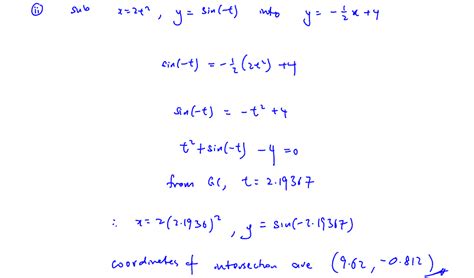 (ii) sub x=2t², y=sin(-t) into y=-½x+4
sin(-t) = -½(2t²)+4
sin(-t) = -t²+4
t²+sin(-t)-4=0
from GC, t=2.19367
∴ x=2(2.1936)², y=sin(-2.19367)
coordinates of intersection are (9.62, -0.812)